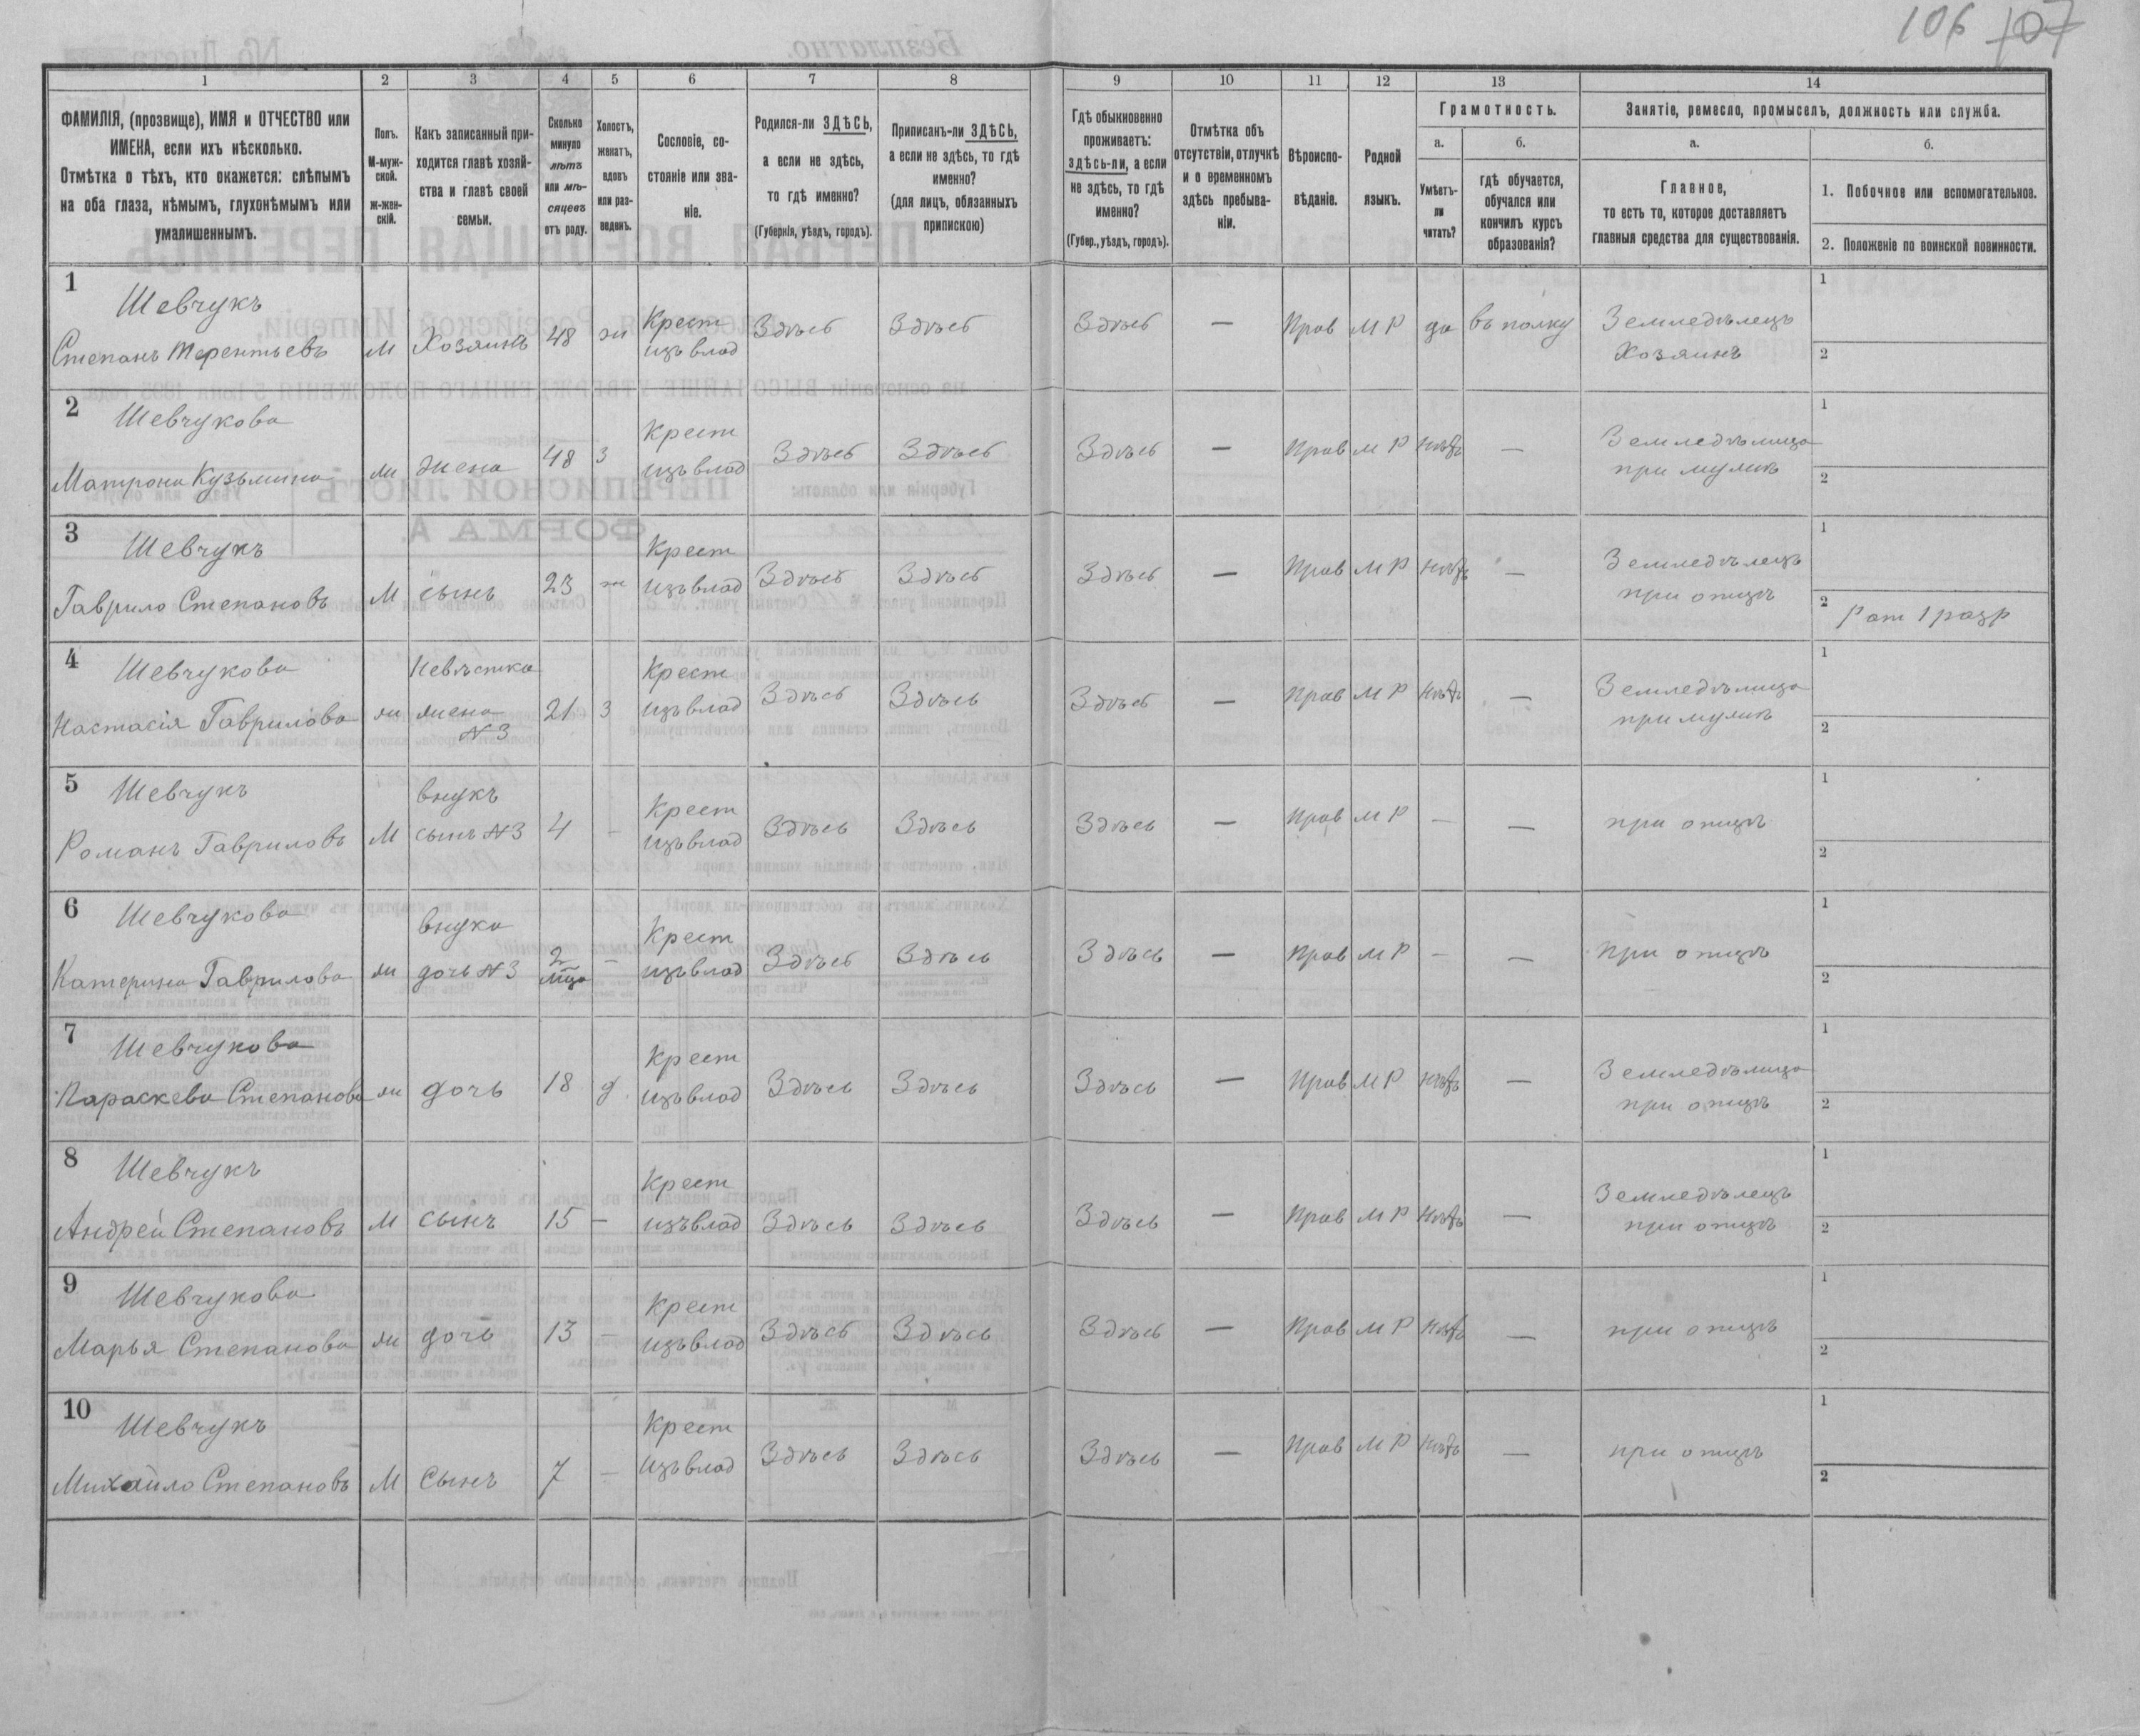 106 107
1 2 3 4 5 6 7 8 9 10 11 12 13 14
ФАМИЛІЯ, (прозвище), ИМЯ и ОТЧЕСТВО или
ИМЕНА, если ихъ нѣсколько.
Отмѣтка о тѣхъ, кто окажется: слѣпымъ
на оба глаза, нѣмымъ, глухонѣмымъ или
умалишеннымъ.
Полъ.
М-муж-
ской.
ж-жен-
скій.
Какъ записанный при-
ходится главѣ хозяй-
ства и главѣ своей
семьи.
Сколько
минуло
лѣтъ
или мѣ-
сяцевъ
отъ роду.
Холостъ,
женатъ,
вдовъ
или раз-
веденъ.
Сословіе, со-
стояніе или зва-
ніе.
Родился-ли ЗДѢСЬ,
а если не здѣсь,
то гдѣ именно?
(Губернія, уѣздъ, городъ).
Приписанъ-ли ЗДѢСЬ,
а если не здѣсь, то гдѣ
именно?
(для лицъ, обязанныхъ
припискою)
Гдѣ обыкновенно
проживаетъ:
здѣсь-ли, а если
не здѣсь, то гдѣ
именно?
(Губер., уѣздъ, городъ).
Отмѣтка объ
отсутствіи, отлучкѣ
и о временномъ
здѣсь пребыва-
ніи.
Вѣроиспо-
вѣданіе.
Родной
языкъ.
Грамотность.
а.
Умѣетъ-
ли
читать?
б.
гдѣ обучается,
обучался или
кончилъ курсъ
образованія?
Занятіе, ремесло, промыселъ, должность или служба.
а.
Главное,
то есть то, которое доставляетъ
главныя средства для существованія.
б.
1. Побочное или вспомогательное.
2. Положеніе по воинской повинности.
1
Шевчукъ
Степанъ Терентьевъ м Хозяинъ 48 ж Крест
изъ влад Здѣсь Здѣсь Здѣсь — Прав М Р да въ полку Земледѣлецъ
Хозяинъ
1
2
2
Шевчукова
Матрона Кузьмина ж жена 48 з Крест
изъ влад Здѣсь Здѣсь Здѣсь — Прав М Р нѣтъ — Земледѣлица
при мужѣ
1
2
3
Шевчукъ
Гаврило Степановъ М сынъ 23 ж Крест
изъ влад Здѣсь Здѣсь Здѣсь — Прав М Р нѣтъ — Земледѣлецъ
при отцѣ
1
2 Рат 1 разр
4
Шевчукова
Настасія Гаврилова ж Невѣстка
жена
N 3 21 з Крест
изъ влад Здѣсь Здѣсь Здѣсь — Прав М Р нѣтъ — Земледѣлица
при мужѣ
1
2
5
Шевчукъ
Романъ Гавриловъ М внукъ
сынъ N 3 4 — Крест
изъ влад Здѣсь Здѣсь Здѣсь — Прав М Р — — при отцѣ
1
2
6
Шевчукова
Катерина Гаврилова ж внука
дочь N 3 2
мца — Крест
изъ влад Здѣсь Здѣсь Здѣсь — Прав М Р — — при отцѣ
1
2
7
Шевчукова
Параскева Степанова ж дочь 18 д Крест
изъ влад Здѣсь Здѣсь Здѣсь — Прав М Р нѣтъ — Земледѣлица
при отцѣ
1
2
8
Шевчукъ
Андрей Степановъ М сынъ 15 — Крест
изъ влад Здѣсь Здѣсь Здѣсь — Прав М Р нѣтъ — Земледѣлецъ
при отцѣ
1
2
9
Шевчукова
Марья Степанова ж дочь 13 — Крест
изъ влад Здѣсь Здѣсь Здѣсь — Прав М Р нѣтъ — при отцѣ
1
2
10
Шевчукъ
Михайло Степановъ М Сынъ 7 — Крест
изъ влад Здѣсь Здѣсь Здѣсь — Прав М Р нѣтъ — при отцѣ
1
2